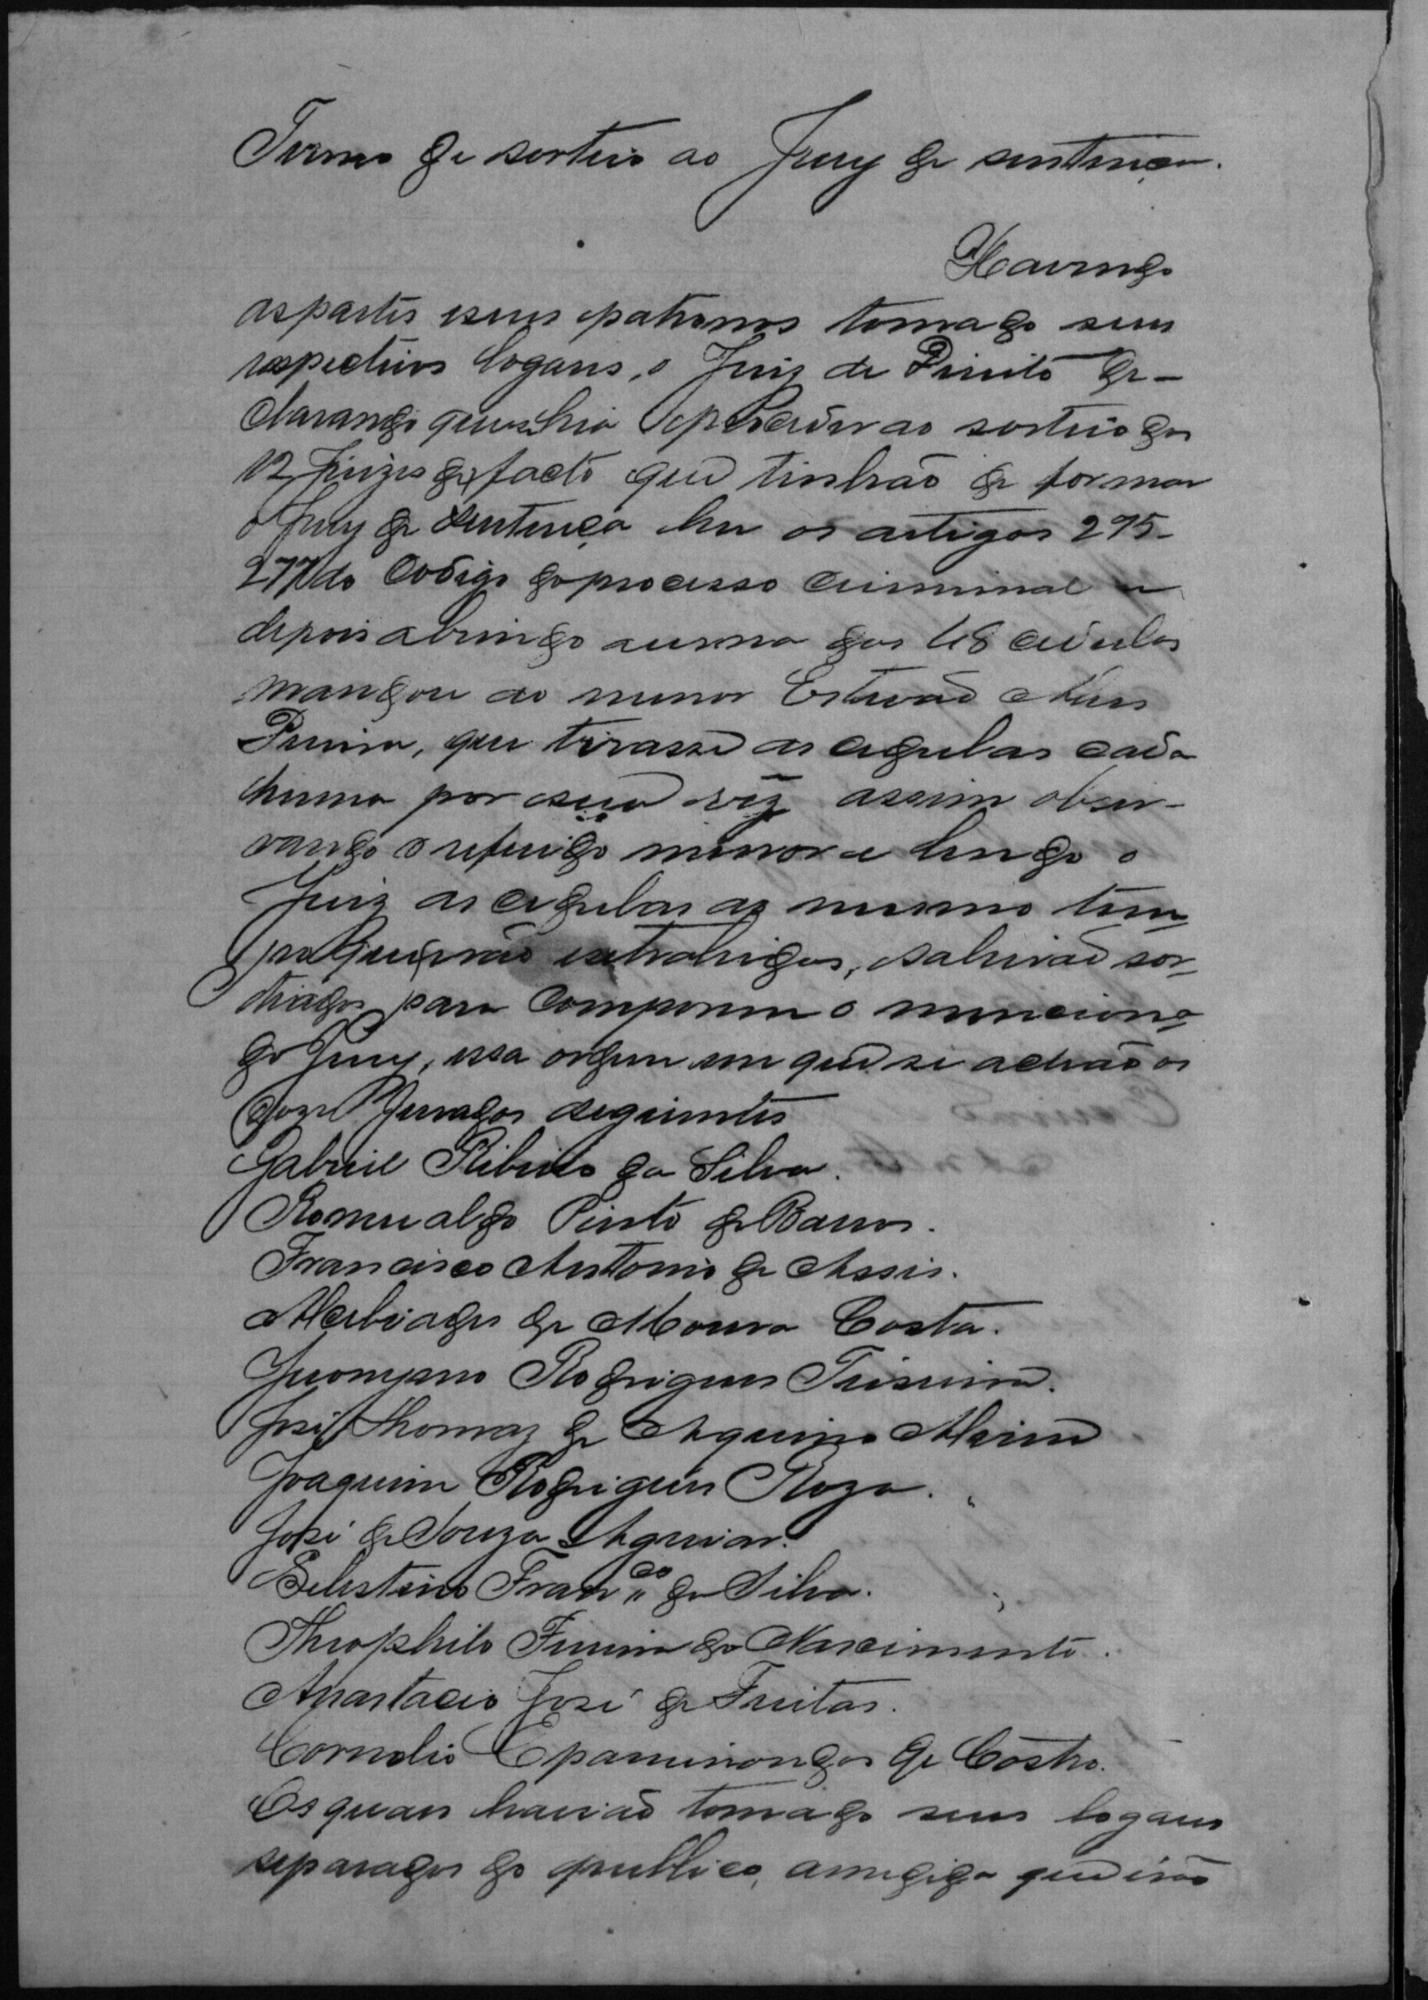 Termo de sorteio ao Jury de sentença.
Havendo
as partes e seus patronos tomado seus
respectivos logares, o Juiz de Direito de-
clarando que hia proceder ao sorteio dos
12 Juizes de facto que tinhão de formar
o Jury de Sentença leu os artigos 275-
277 do Codigo do processo Criminal e
depois abrindo a urna das 48 cedulas
mandou ao menor Estevão Alves
Pereira, que tirasse as cedulas cada
huma por sua vez assim obser-
vando o referido menor e lendo o
Juiz as cedulas ao mesmo tem
po que erão extrahidas, sahirão sor-
tiados para comporem o menciona
do Jury, essa ordem em que se achão os
doze Jurados seguintes
Gabriel Ribeiro da Silva.
Romualdo Pinto de Barros.
Francisco Antonio de Assis.
Melciades de Moura Costa.
Jeronymo Rodrigues Teixeira.
José Thomaz de Aquino
Joaquim Rodrigues Roza.
José de Souza Aguiar.
Selestino Fran.co da Silva.
Theophilo Ferreira do Nascimento.
Anastacio José de Freitas.
Cornelio Epaminondas de Castro.
Os quaes havião tomado seus logares
separados do publico, a medida que erão